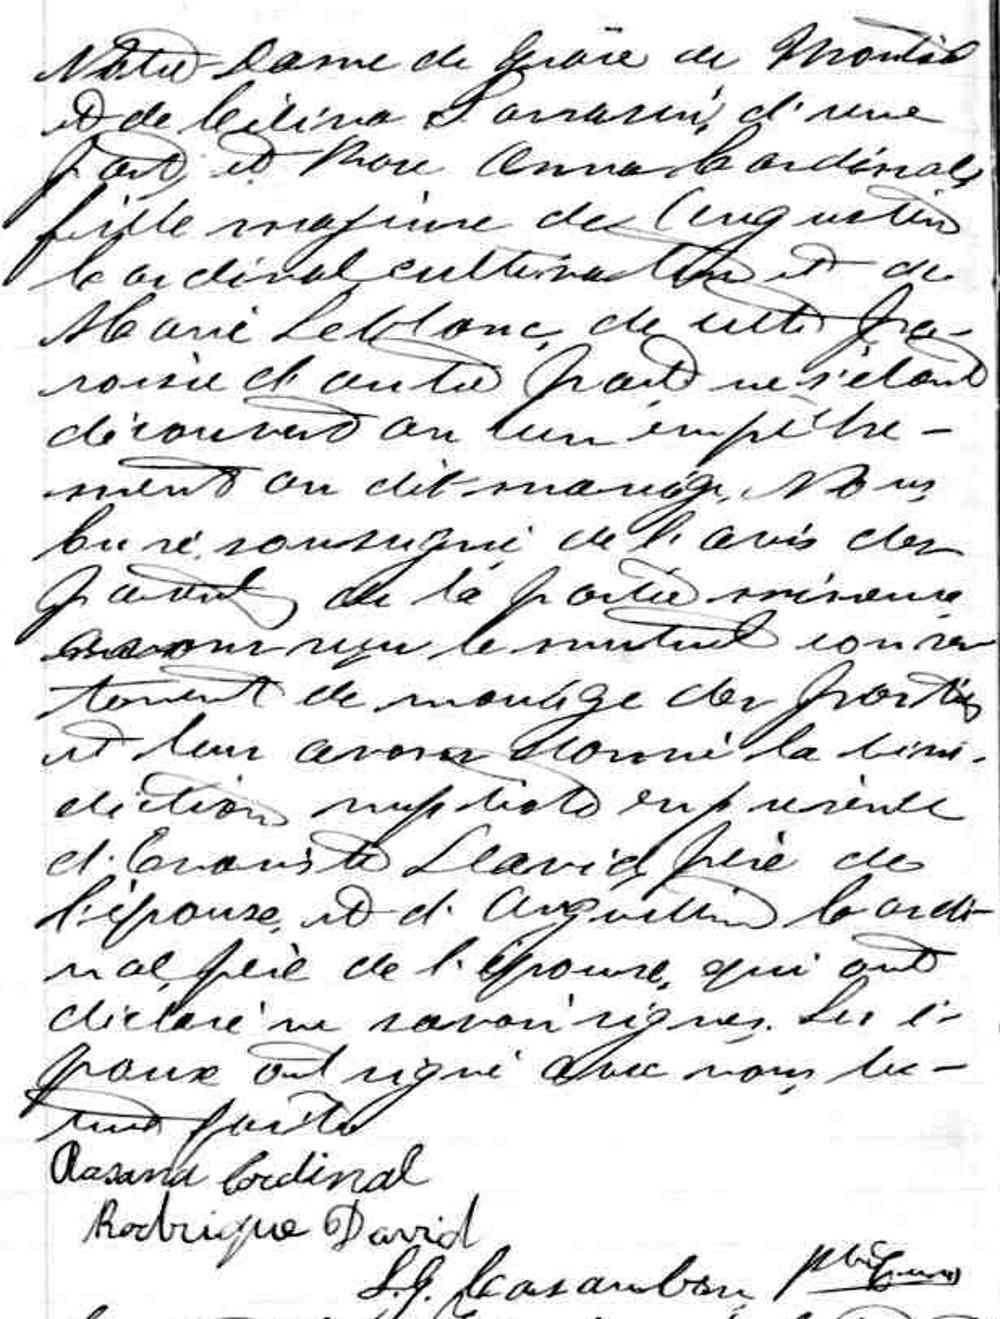 Notre Dame de Grâce de Montréal
et de Célina Sarrasin, d'une
part, et Rose Anna Cardinal,
fille majeure de Augustin
Cardinal cultivateur et de
Marie Leblanc, de cette pa-
roisse d'autre part ne s'étant
découvert aucun empêche-
ment au dit mariage, Nous
Curé soussigné de l'avis des
parents de la partie mineure
avons reçu le mutuel consen
tement de mariage des parties
et leur avons donné la béné-
diction nuptiale en présence
d'Evariste David, père de
l'épouse, et d'Augustin Cardi-
nal, père de l'épouse, qui ont
déclaré ne savoir signer. Les é-
poux ont signé avec nous, lec-
ture faite
Rosana Cordinal
Rodrigue David
L. G. Casaubon ptre